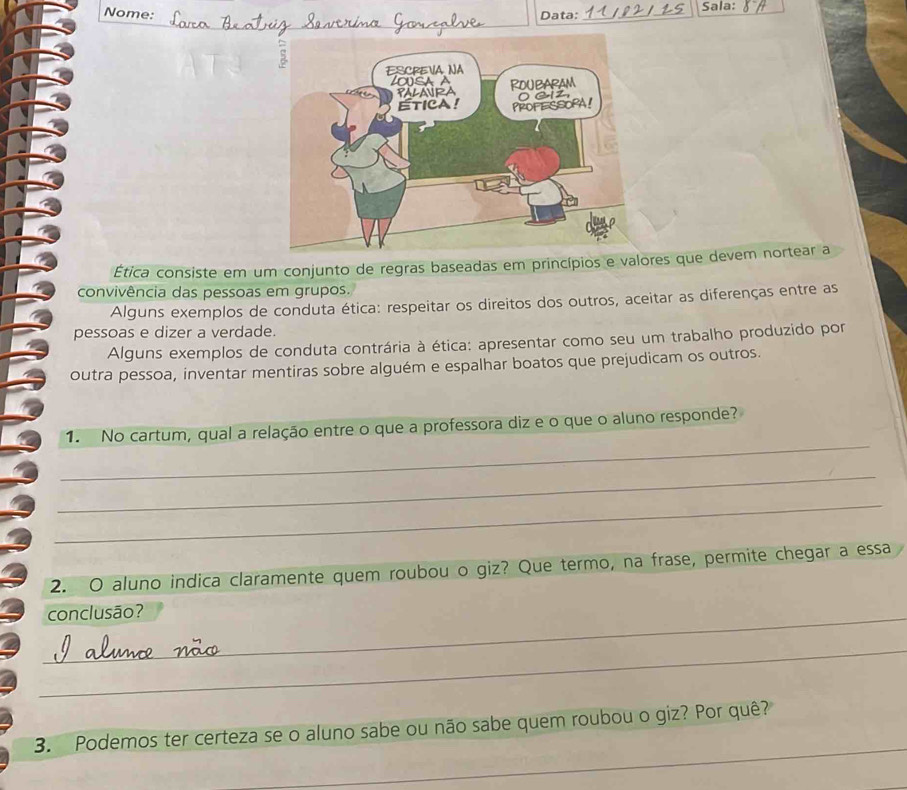 Nome: Lara Beatriz Severina Gonçalves Data: 11/02/25 Sala: 8 A
Figura 17
ESCREVA NA
LOUSA A
PALAVRA
ÉTICA!
ROUBARAM
O GIZ,
PROFESSORA!
Ética consiste em um conjunto de regras baseadas em princípios e valores que devem nortear a
convivência das pessoas em grupos.
Alguns exemplos de conduta ética: respeitar os direitos dos outros, aceitar as diferenças entre as
pessoas e dizer a verdade.
Alguns exemplos de conduta contrária à ética: apresentar como seu um trabalho produzido por
outra pessoa, inventar mentiras sobre alguém e espalhar boatos que prejudicam os outros.
1. No cartum, qual a relação entre o que a professora diz e o que o aluno responde?
2. O aluno indica claramente quem roubou o giz? Que termo, na frase, permite chegar a essa
conclusão?
não
3. Podemos ter certeza se o aluno sabe ou não sabe quem roubou o giz? Por quê?